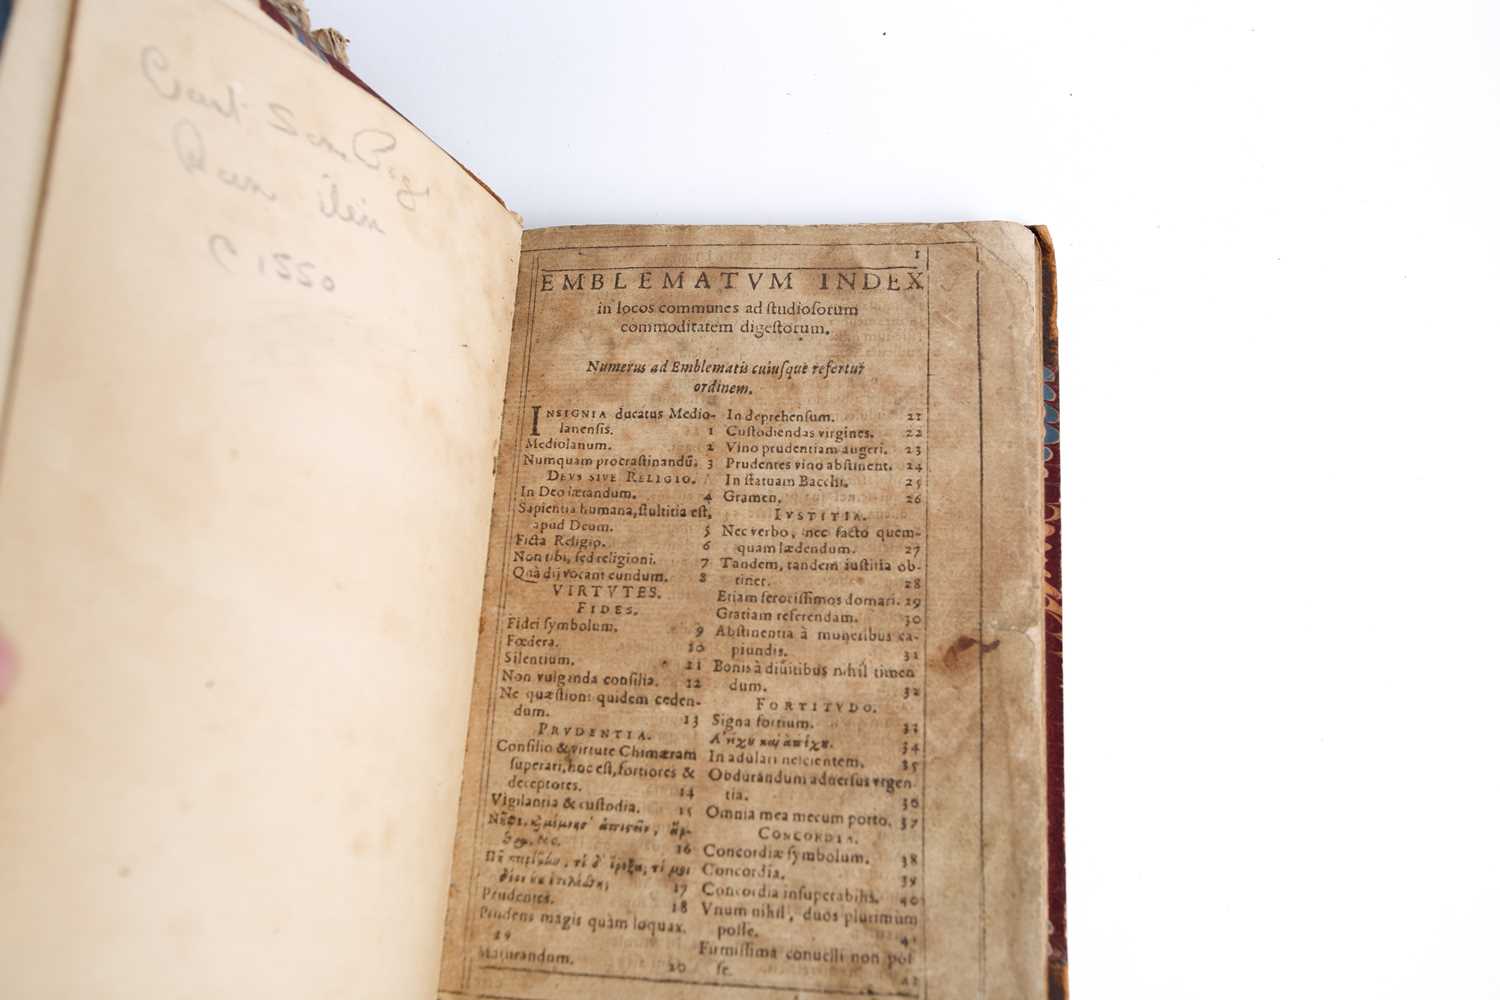 c 1550
1
EMBLEMATVM INDEX
in locos communes ad ſtudioſorum
commoditatem digeſtorum.
Numerus ad Emblematis cuiuſque refertur
ordinem.
INSIGNIA ducatus Medio-
lanenſis. 1
Mediolanum. 2
Numquam procraſtinandũ. 3
DEVS SIVE RELIGIO.
In Deo lætandum. 4
Sapientia humana, ſtultitia eſt,
apud Deum. 5
Ficta Religio. 6
Non tibi, ſed religioni. 7
Quà dij vocant eundum. 8
VIRTVTES.
FIDES.
Fidei ſymbolum. 9
Fœdera. 10
Silentium. 11
Non vulganda conſilia. 12
Ne quæſtioni quidem ceden-
dum. 13
PRVDENTIA.
Conſilio & virtute Chimæram
ſuperari, hoc eſt, fortiores &
deceptores. 14
Vigilantia & cuſtodia. 15
16
17
Prudentes. 18
Prudens magis quàm loquax.
19
Maturandum. 20
In deprehenſum. 21
Cuſtodiendas virgines. 22
Vino prudentiam augeri. 23
Prudentes vino abſtinent. 24
In ſtatuam Bacchi. 25
Gramen. 26
IVSTITIA.
Nec verbo, nec facto quem-
quam lædendum. 27
Tandem, tandem iuſtitia ob-
tinet. 28
Etiam ferociſſimos domari. 29
Gratiam referendam. 30
Abſtinentia à muneribus ca-
piundis. 31
Bonis à diuitibus nihil timen
dum. 32
FORTITVDO.
Signa fortium. 33
34
In adulari neſcientem. 35
Obdurandum aduerſus vrgen
tia. 36
Omnia mea mecum porto. 37
CONCORDIA.
Concordiæ ſymbolum. 38
Concordia. 39
Concordia inſuperabilis. 40
Vnum nihil, duos plurimum
poſſe. 41
Firmiſſima conuelli non poſ
ſe. 42